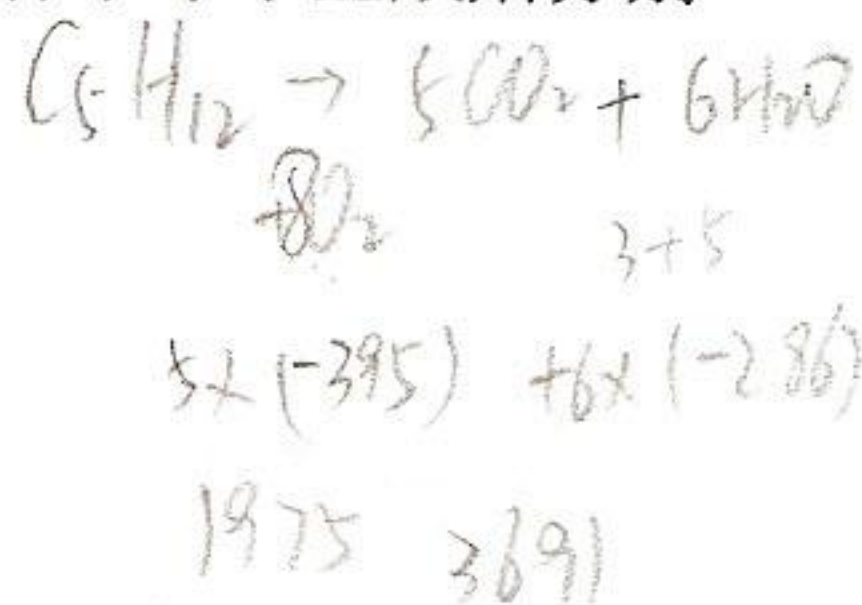 C5H12 → 5CO2 + 6H2O
+8O2
3+5
5×(-395) +6×(-286)
1975 3691